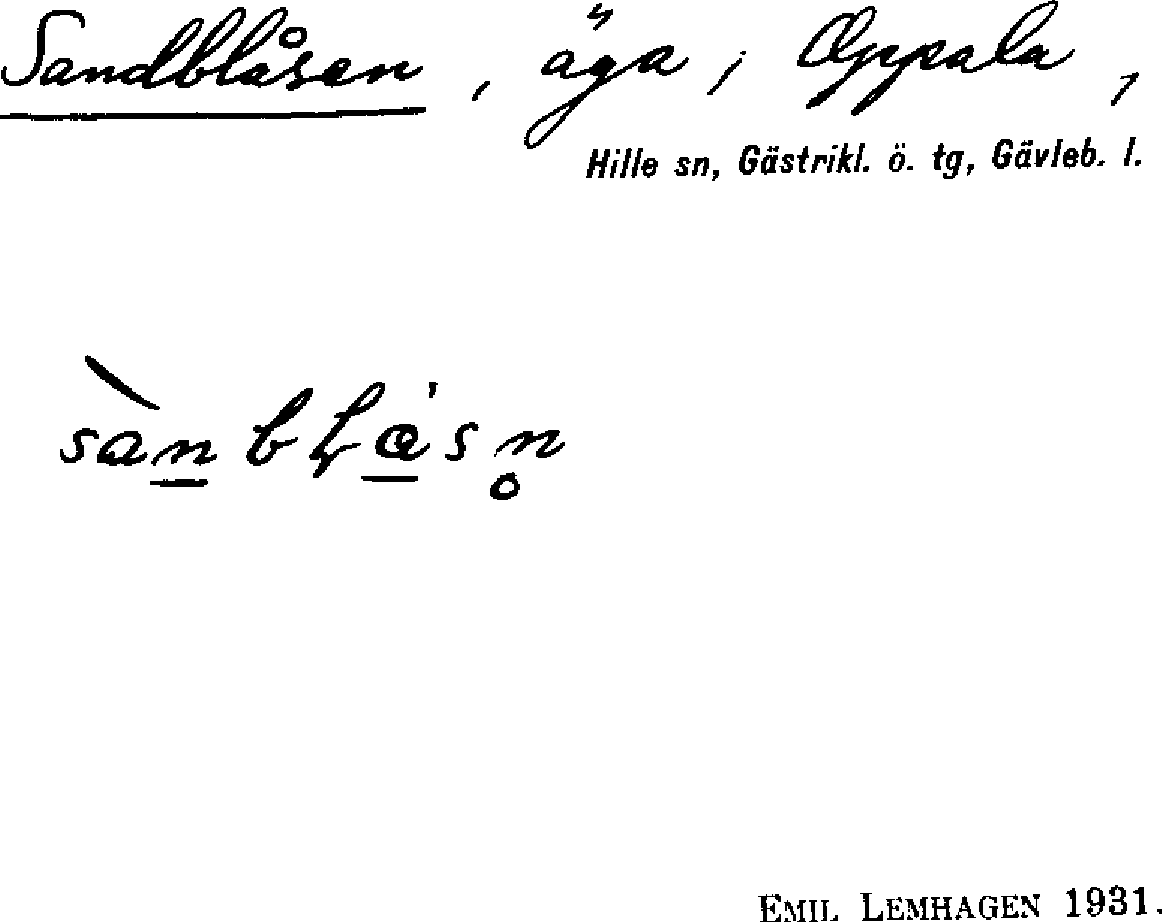 Sandblåsen, äga, i Oppala,
Hille sn, Gästrikl. ö. tg, Gävleb. l.
EMIL LEMHAGEN 1931.